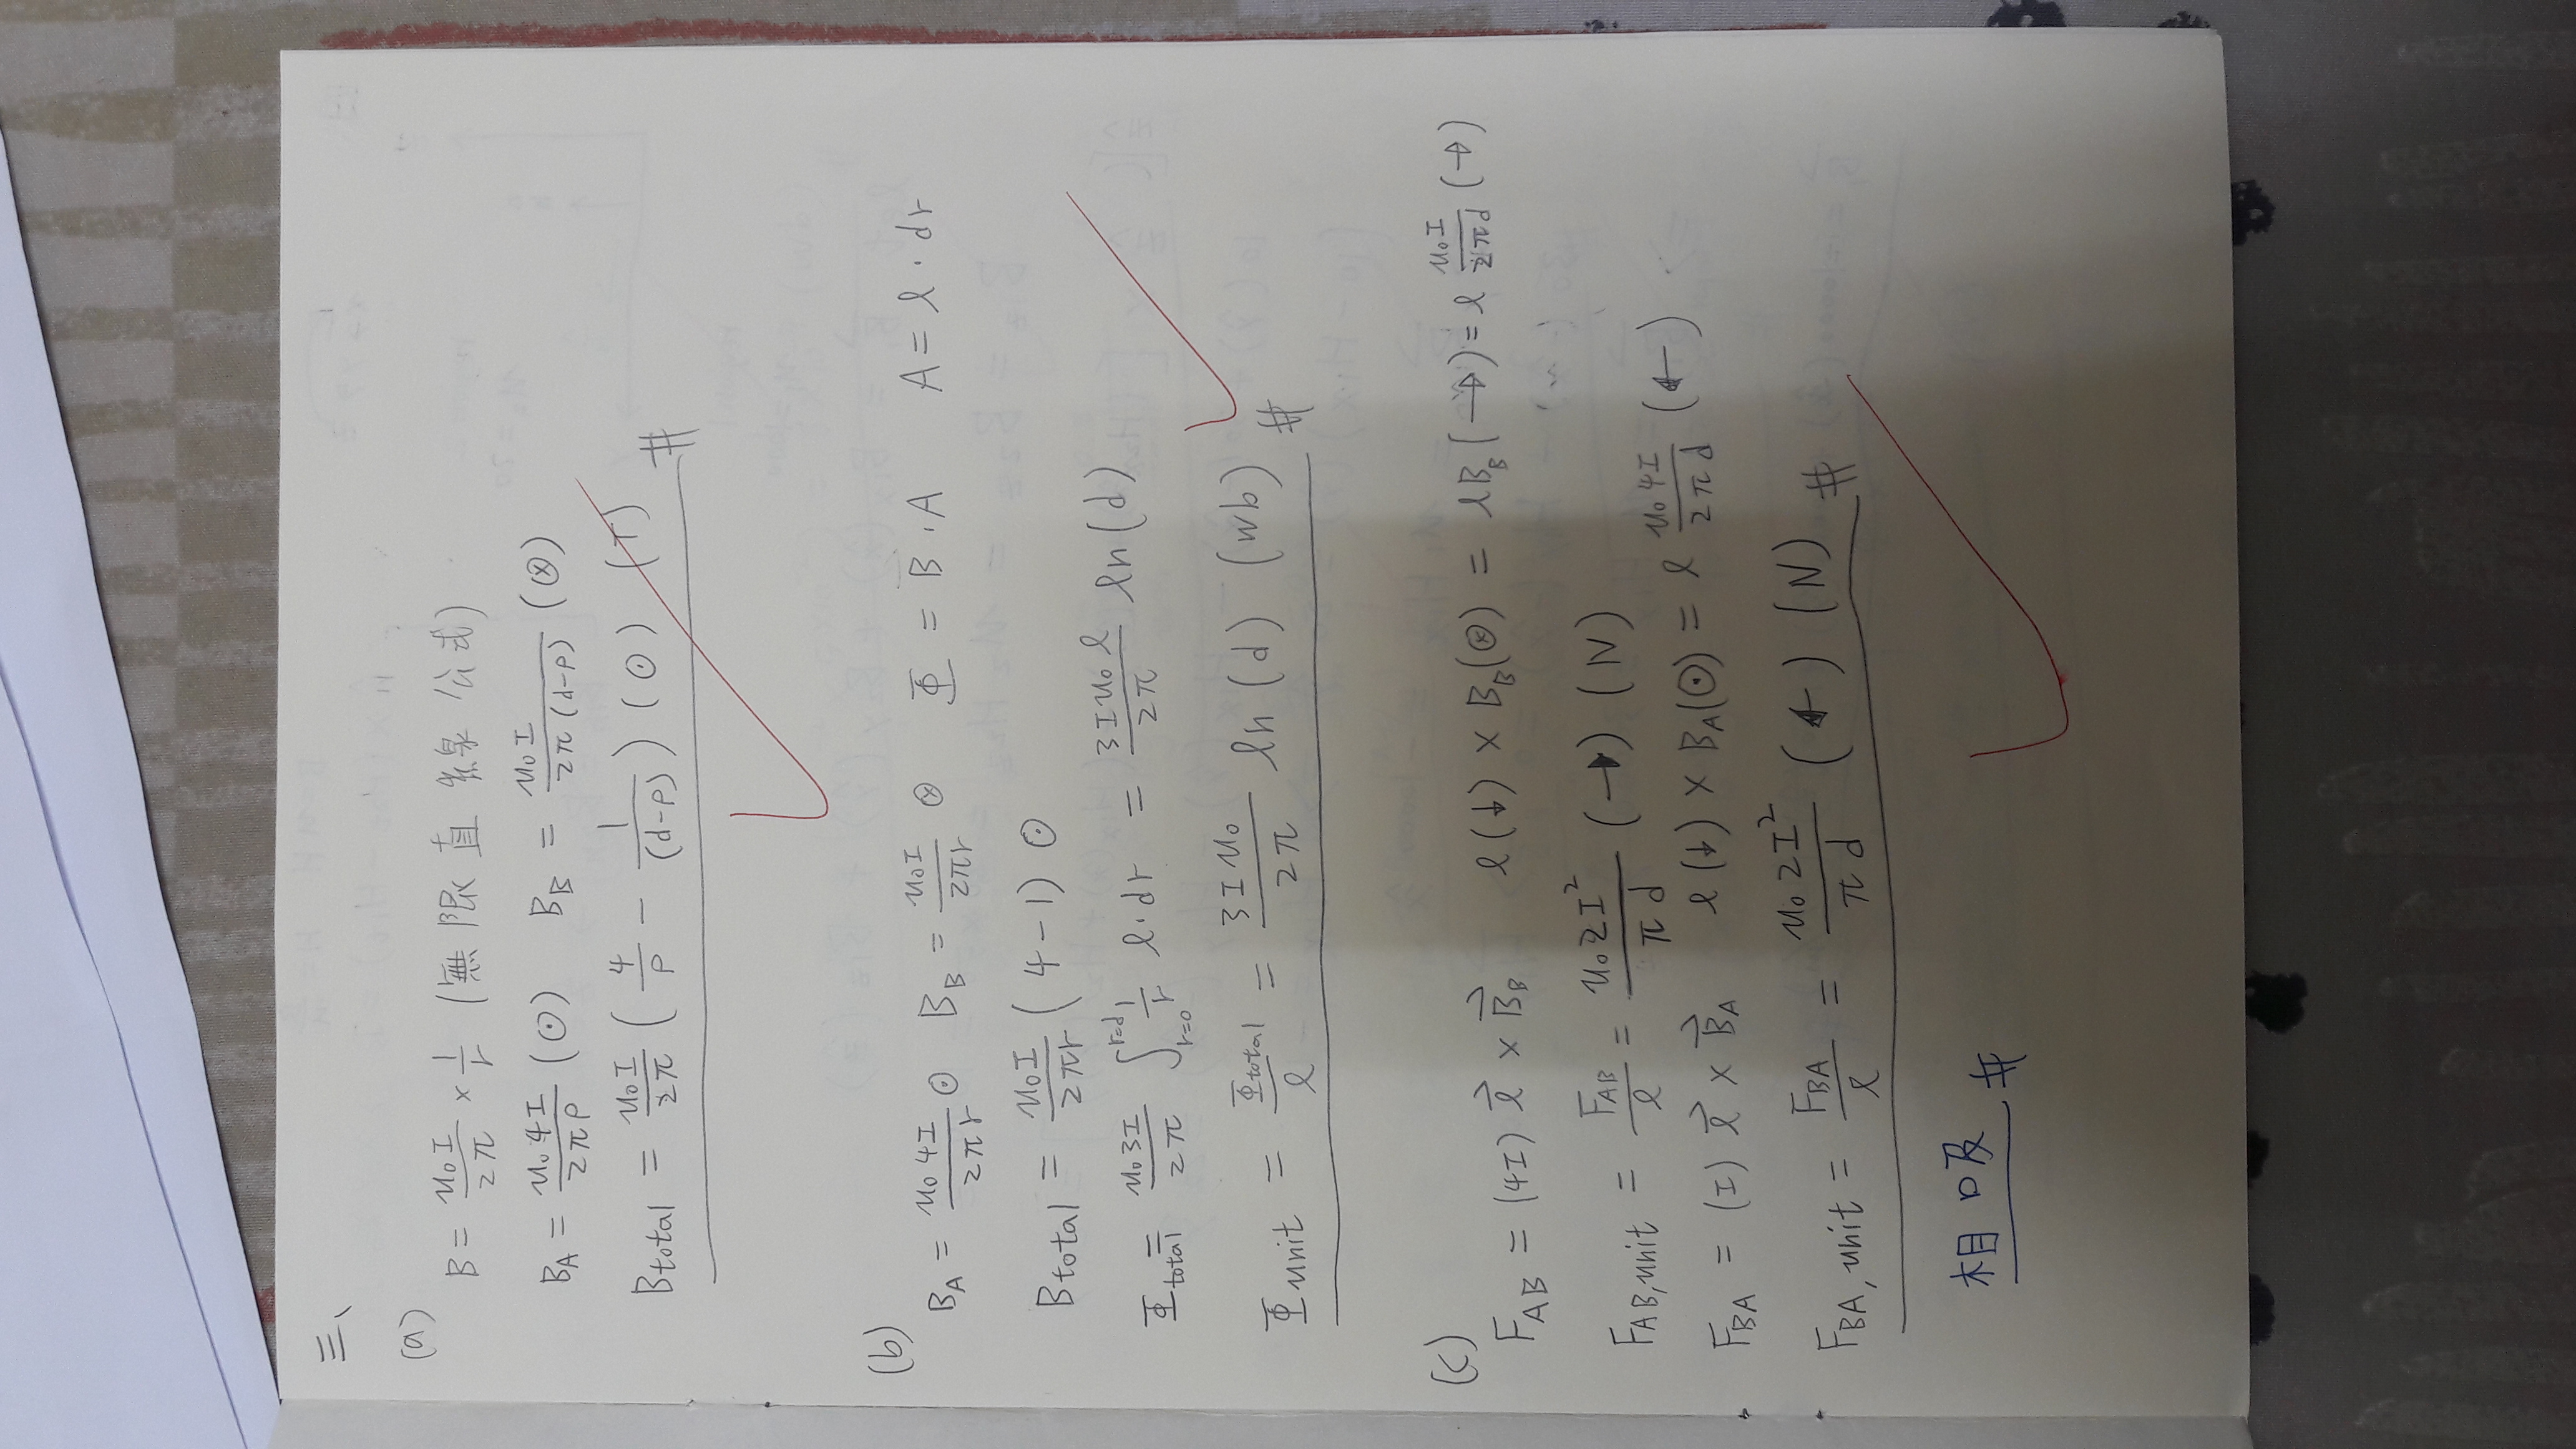 三、
(a)
B = μ₀I/2π × 1/r (無限直線公式)
B_A = μ₀4I/2πρ (⊙) B_B = μ₀I/2π(d-ρ) (⊗)
Btotal = μ₀I/2π (4/ρ - 1/(d-ρ)) (⊙) (T) #
(b)
B_A = μ₀4I/2πr ⊙ B_B = μ₀I/2πr ⊗ Φ = B·A A = ℓ·dr
Btotal = μ₀I/2πr (4-1) ⊙
Φtotal = μ₀3I/2π ∫_{r=0}^{r=d} 1/r ℓ·dr = 3Iμ₀ℓ/2π ln(d)
Φunit = Φtotal/ℓ = 3Iμ₀/2π ln(d) (wb) #
(c)
F_AB = (4I) ℓ⃗ × B⃗_B ℓ(↓) × B_B(⊗) = ℓB_B(→) = ℓ μ₀I/2πd (→)
F_AB,unit = F_AB/ℓ = μ₀2I²/πd (→) (N)
F_BA = (I) ℓ⃗ × B⃗_A ℓ(↓) × B_A(⊙) = ℓ μ₀4I/2πd (←)
F_BA,unit = F_BA/ℓ = μ₀2I²/πd (←) (N) #
相吸 #